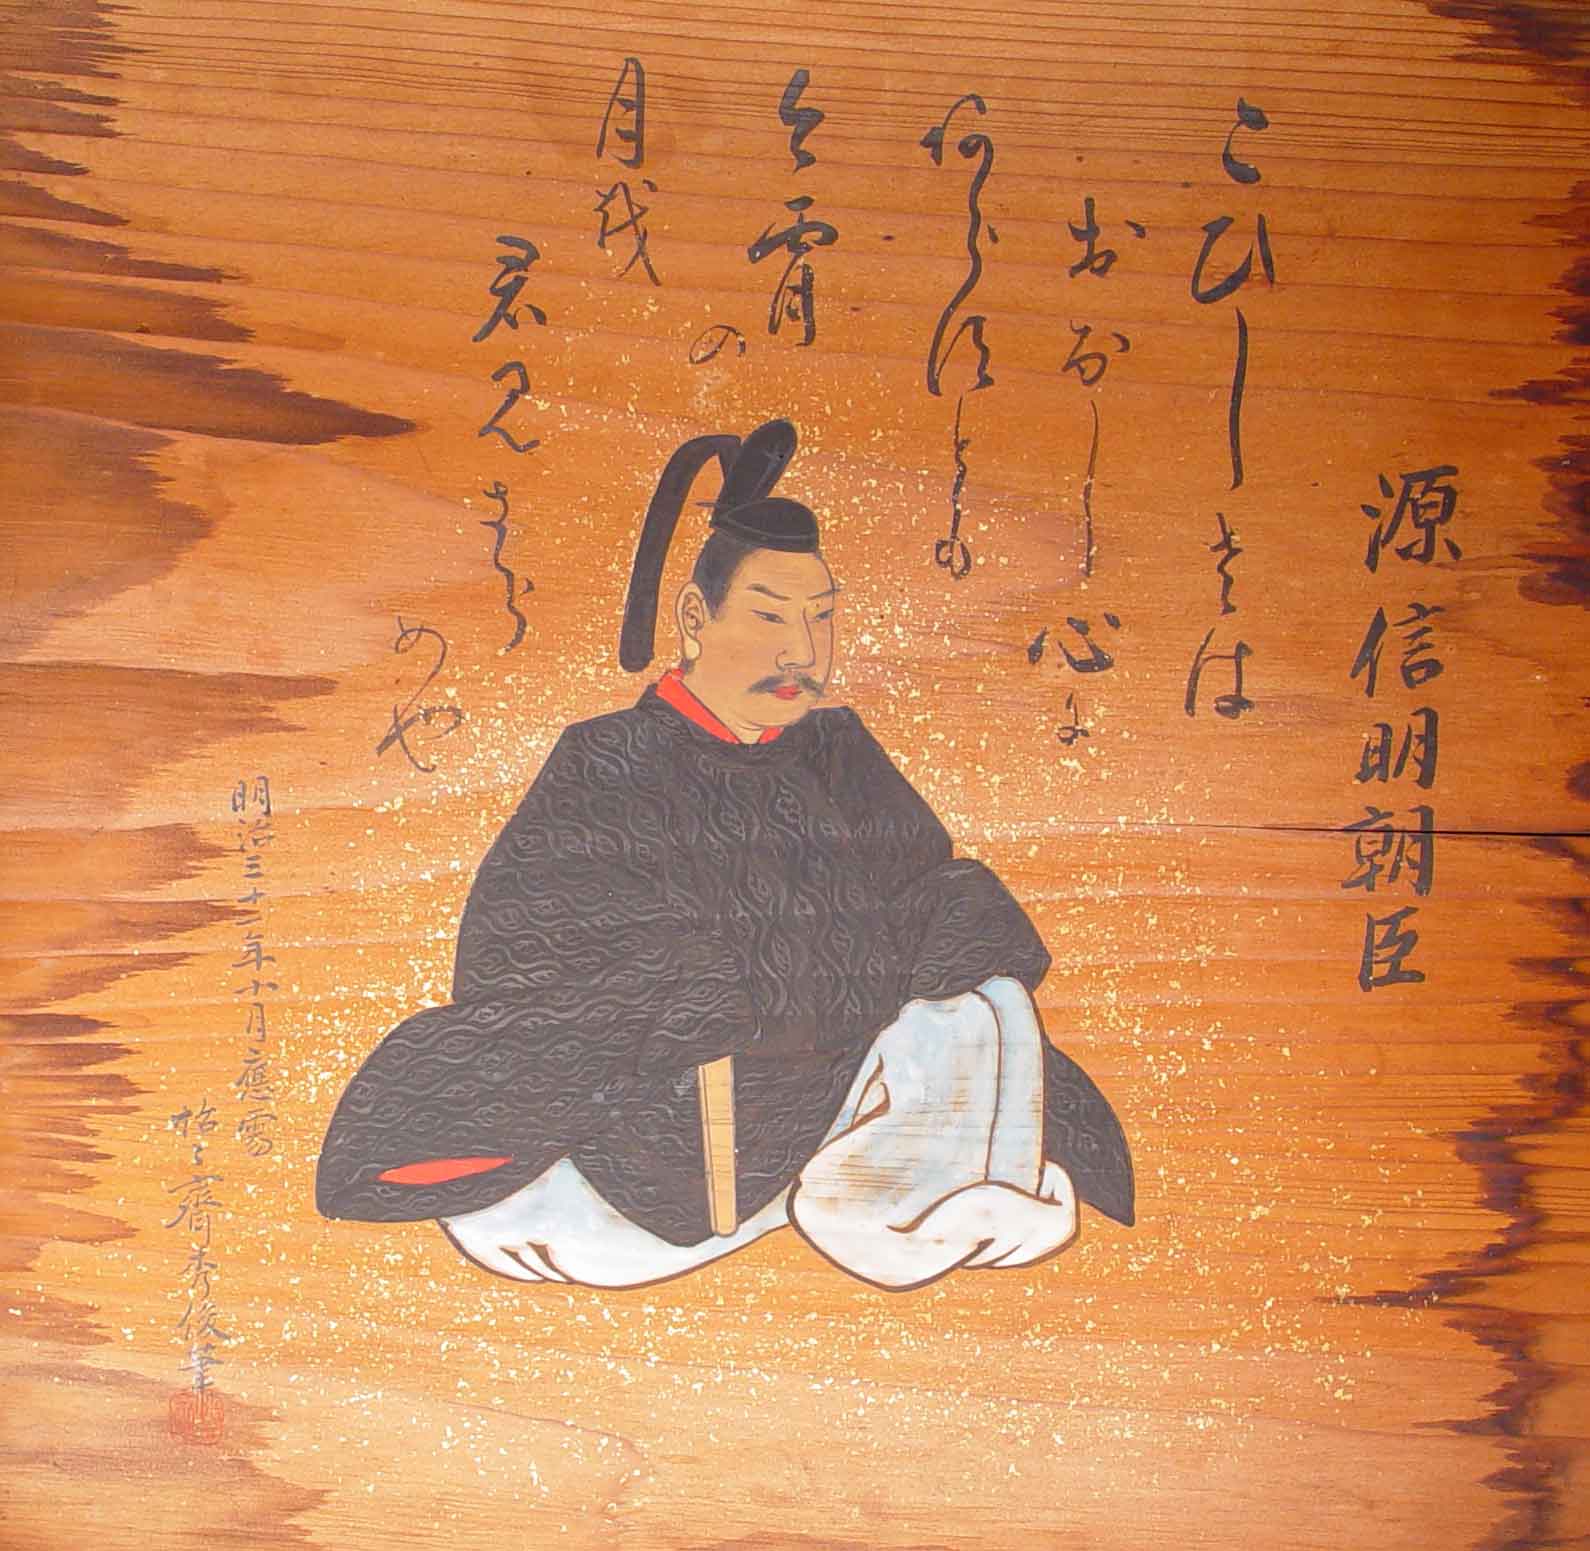 源信明朝臣
こひしさは
おなし心に
あらすとも
今宵の
月を
君見さら
めや
明治三十一年十月應需
齋秀俊筆